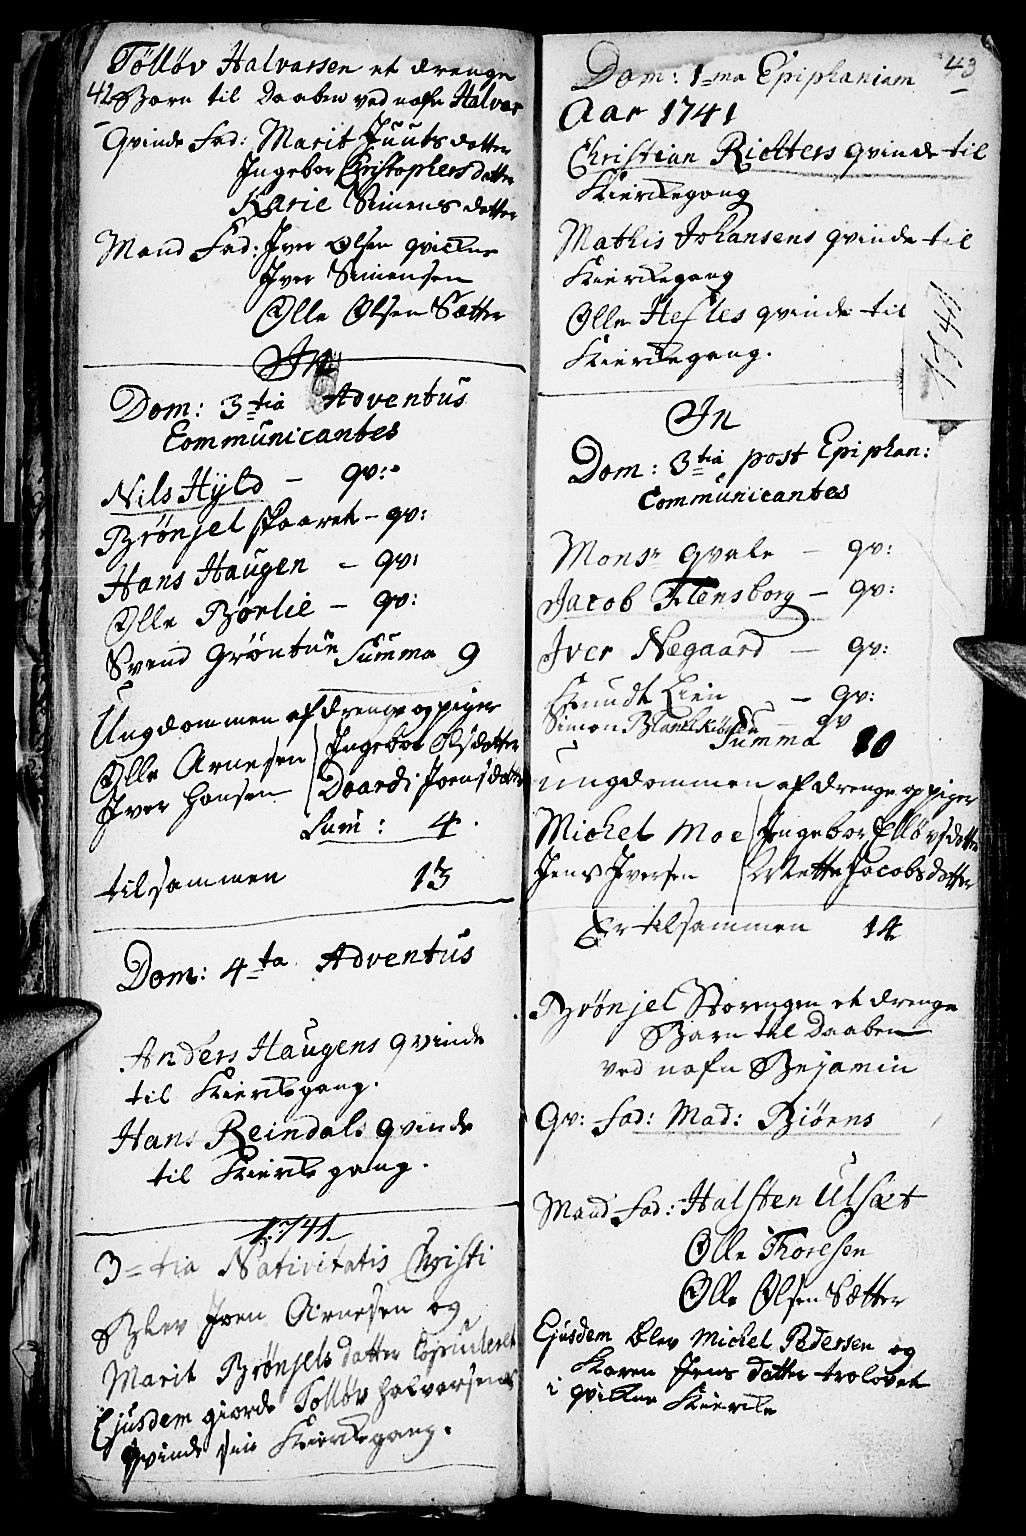 42
Tölløv Halvorsen et drenge
Barn til Daaben ved nafn Halvor
Qvinde Fad: Marit Juuts datter
Ingebor Christophersdatter
Karie Simensdatter
Mand Fad: Iver Olsen qvickne
Iver Simensen
Olle Olsen Sætter
In
Dom: 3tia Adventus
Communicantes
Nils Hyld – qv:
Brönjel skaaret – qv:
Hans Haugen – qv:
Olle Börlie – qv:
Svend Gröntue Summa 9
Ungdommen af drenge og piger
Olle Arnesen Ingebor Olsdatter
Iver Hansen Doardi Joensdatter
Sum: 4.
tilsammen 13
Dom: 4ta Adventus
Anders Haugens qvinde
til Kierkegang.
Hans Reindals qvinde
til Kierkegang.
1741
3tia Nativitatis Christi
Blev Joen Arnesen og
Marit Brönjels datter Copuleret
Ejusdem giorde Tölløv halvorsens
qvinde sin Kierkegang.
43
Dom: 1ma Epiphaniam
Aar 1741
Christian Richters qvinde til
Kierkegang
Mathis Johansens qvinde til
Kierkegang
Olle Hefles qvinde til
Kierkegang.
1741
In
Dom: 3tia post Epiphan:
Communicantes
Monsr Qvale – qv:
Jacob Flensborg – qv:
Iver Nægaard – qv:
Knudt Lien – qv:
Simon – qv
Summa 10
Ungdommen af drenge og piger
Michel Moe Ingebor Ellövsdatter
Jens Iversen Mette Jacobsdatter
Er tilsammen 14
Brönjel Storengen et drenge
Barn til Daaben
ved nafn Bejamin
Qv: Fad: Mad: Biørns
Mand Fad: Halsten Ulsæt
Olle Thoresen
Olle Olsen Sætter
Ejusdem blev Michel Pedersen og
Karen Jens datter trolovet
i qvickne Kiercke